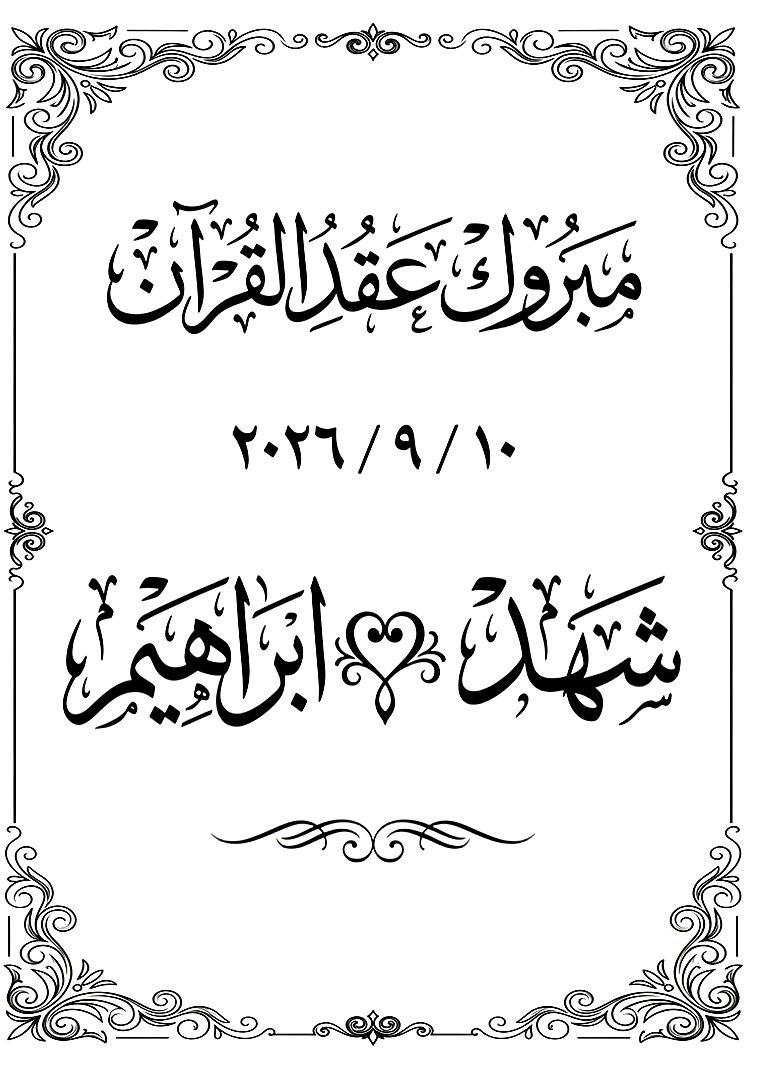 مَبَرُوكْ عَقُدُِ القُرْآنْ
١٠ / ٩ / ٢٠٢٦
شَهَدْ ابَرَاهِيَمْ